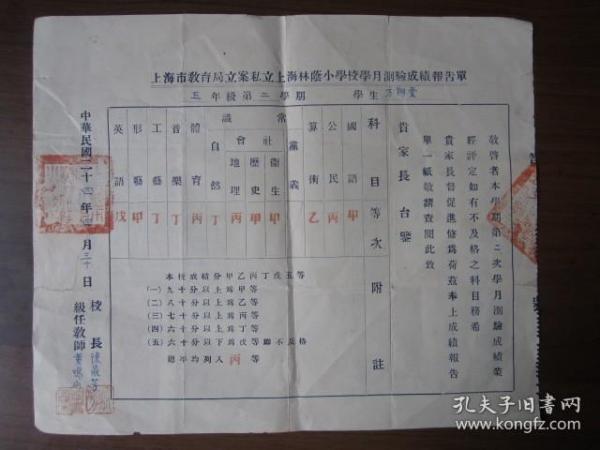 上海市敎育局立案私立上海林蔭小學校學月測驗成績報吿單
五年級第二學期 學生
敬啓者本學期第二次學月測驗成績業
經評定如有不及格之科目務希
貴家長督促進修爲荷茲奉上成績報告
單一紙敬請查閱此致
貴家長 台鑒
科目 等次 附註
國語 甲
公民 丙
算術 乙
常識
黨義
社會
衛生 甲
歷史 甲
地理 丙
自然 丁
體育 丙
音樂 丁
工藝 丁
形藝 甲
英語 戊
本校成績分甲乙丙丁戊五等
(一)九十分以上爲甲等
(二)八十分以上爲乙等
(三)七十分以上爲丙等
(四)六十分以上爲丁等
(五)六十分以下爲戊等卽不及格
總平均列入丙等
中華民國二十 年 月三十日
校長
級任敎師
孔夫子旧书网
www.kongfz.com